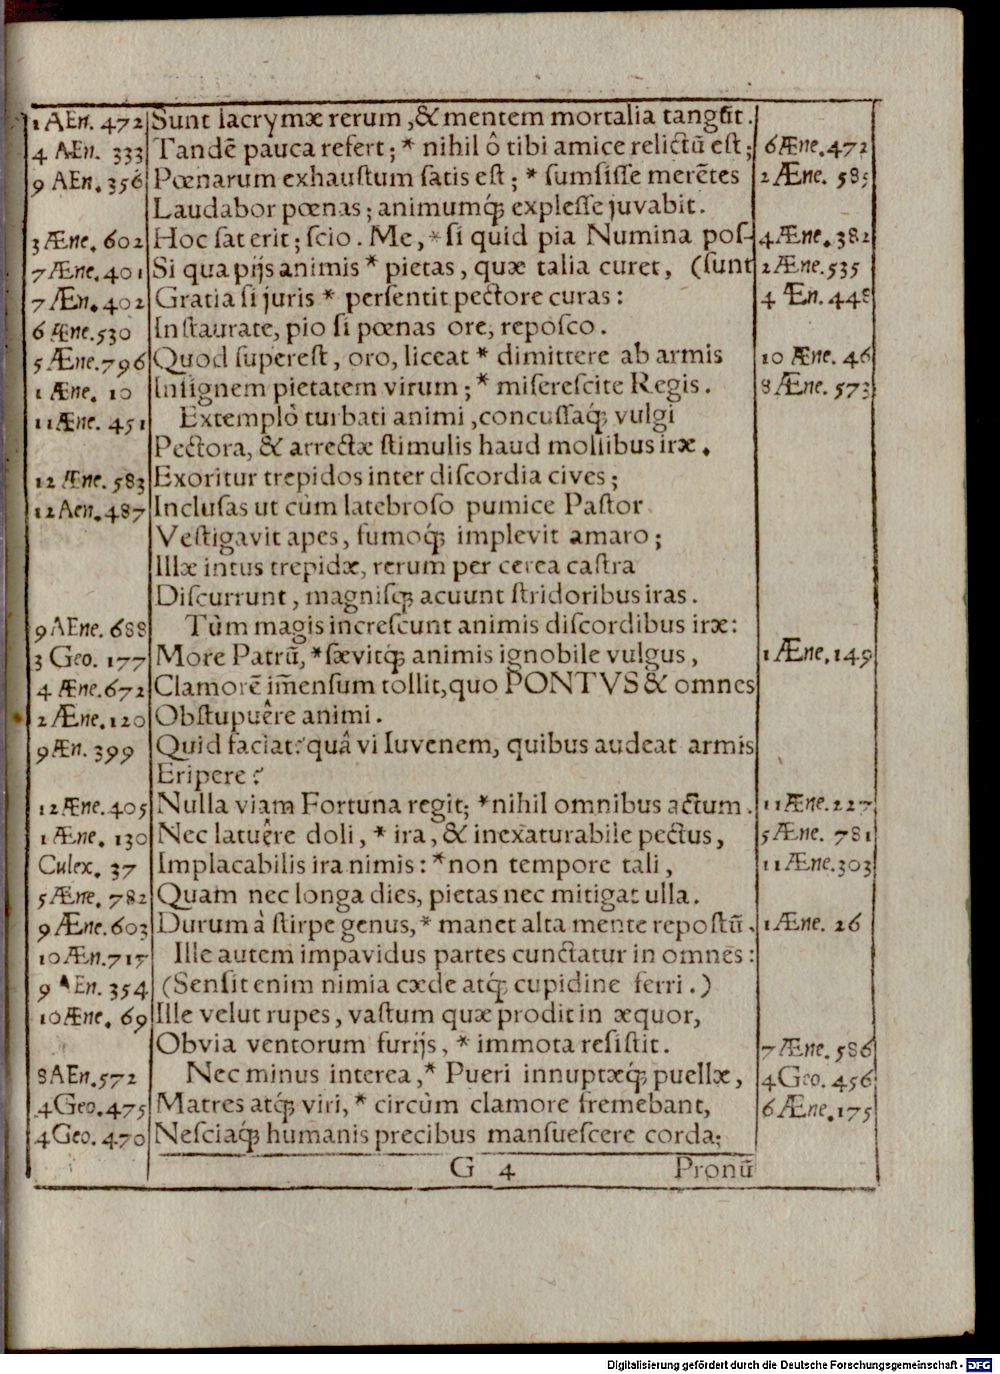 1 AEn. 472 Sunt lacrymæ rerum, & mentem mortalia tangũt.
4 AEn. 333 Tandẽ pauca refert; * nihil ô tibi amice relictũ est; 6Æne. 472
9 AEn. 356 Pœnarum exhaustum satis est; * sumsisse merẽtes 2Æne. 585
Laudabor pœnas; animumq́; explesse juvabit.
3Æne. 602 Hoc sat erit; scio. Me, * si quid pia Numina pos- 4Æne. 382
7Æne. 401 Si qua pijs animis * pietas, quæ talia curet, (sunt 2Æne. 535
7Æn. 402 Gratia si juris * persentit pectore curas: 4 Æn. 448
6 Æne. 530 Instaurate, pio si pœnas ore, reposco.
5Æne. 796 Quod superest, oro, liceat * dimittere ab armis 10 Æne. 46
1 Æne. 10 Insignem pietatem virum; * miserescite Regis. 8Æne. 573
11Æne. 451 Extemplò turbati animi, concussaq́; vulgi
Pectora, & arrectæ stimulis haud mollibus iræ.
12 Æne. 583 Exoritur trepidos inter discordia cives;
12Aen. 487 Inclusas ut cùm latebroso pumice Pastor
Vestigavit apes, fumoq́; implevit amaro;
Illæ intus trepidæ, rerum per cerea castra
Discurrunt, magnisq́; acuunt stridoribus iras.
9AEne. 688 Tùm magis increscunt animis discordibus iræ:
3 Geo. 177 More Patrũ, * sævitq́; animis ignobile vulgus, 1Æne. 149
4 Æne. 672 Clamorẽ im̃ensum tollit, quo PONTVS & omnes
2Æne. 120 Obstupuêre animi.
9Æn. 399 Quid faciat? quâ vi Iuvenem, quibus audeat armis
Eripere?
12Æne. 405 Nulla viam Fortuna regit; * nihil omnibus actum. 11Æne. 227
1Æne. 130 Nec latuêre doli, * ira, & inexaturabile pectus, 5Æne. 781
Culex. 37 Implacabilis ira nimis: * non tempore tali, 11Æne. 303
5Æne. 782 Quam nec longa dies, pietas nec mitigat ulla.
9Æne. 603 Durum â stirpe genus, * manet alta mente repostũ. 1Æne. 26
10Æn. 717 Ille autem impavidus partes cunctatur in omnes:
9 AEn. 354 (Sensit enim nimia cæde atq́; cupidine ferri.)
10Æne. 69 Ille velut rupes, vastum quæ prodit in æquor,
Obvia ventorum furijs, * immota resistit. 7Æne. 586
8AEn. 572 Nec minus interea, * Pueri innuptæq́; puellæ, 4Geo. 456
4Geo. 475 Matres atq́; viri, * circùm clamore fremebant, 6Æne. 175
4Geo. 470 Nesciaq́; humanis precibus mansuescere corda;
G 4 Pronũ
Digitalisierung gefördert durch die Deutsche Forschungsgemeinschaft - DFG